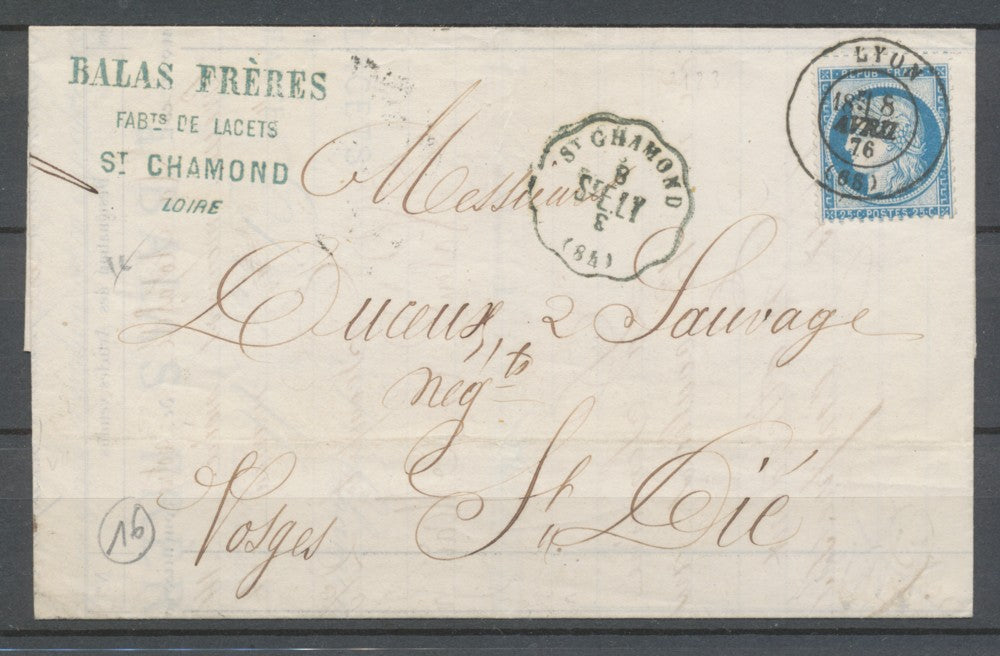 BALAS FRÈRES
FABTS DE LACETS
ST CHAMOND
LOIRE
ST CHAMOND
8
ST E.LY
(84)
LYON
8
AVRIL
76
(68)
25c·POSTES·25c
Messieurs
Duceux & Sauvage
négts
St Dié
Vosges
19